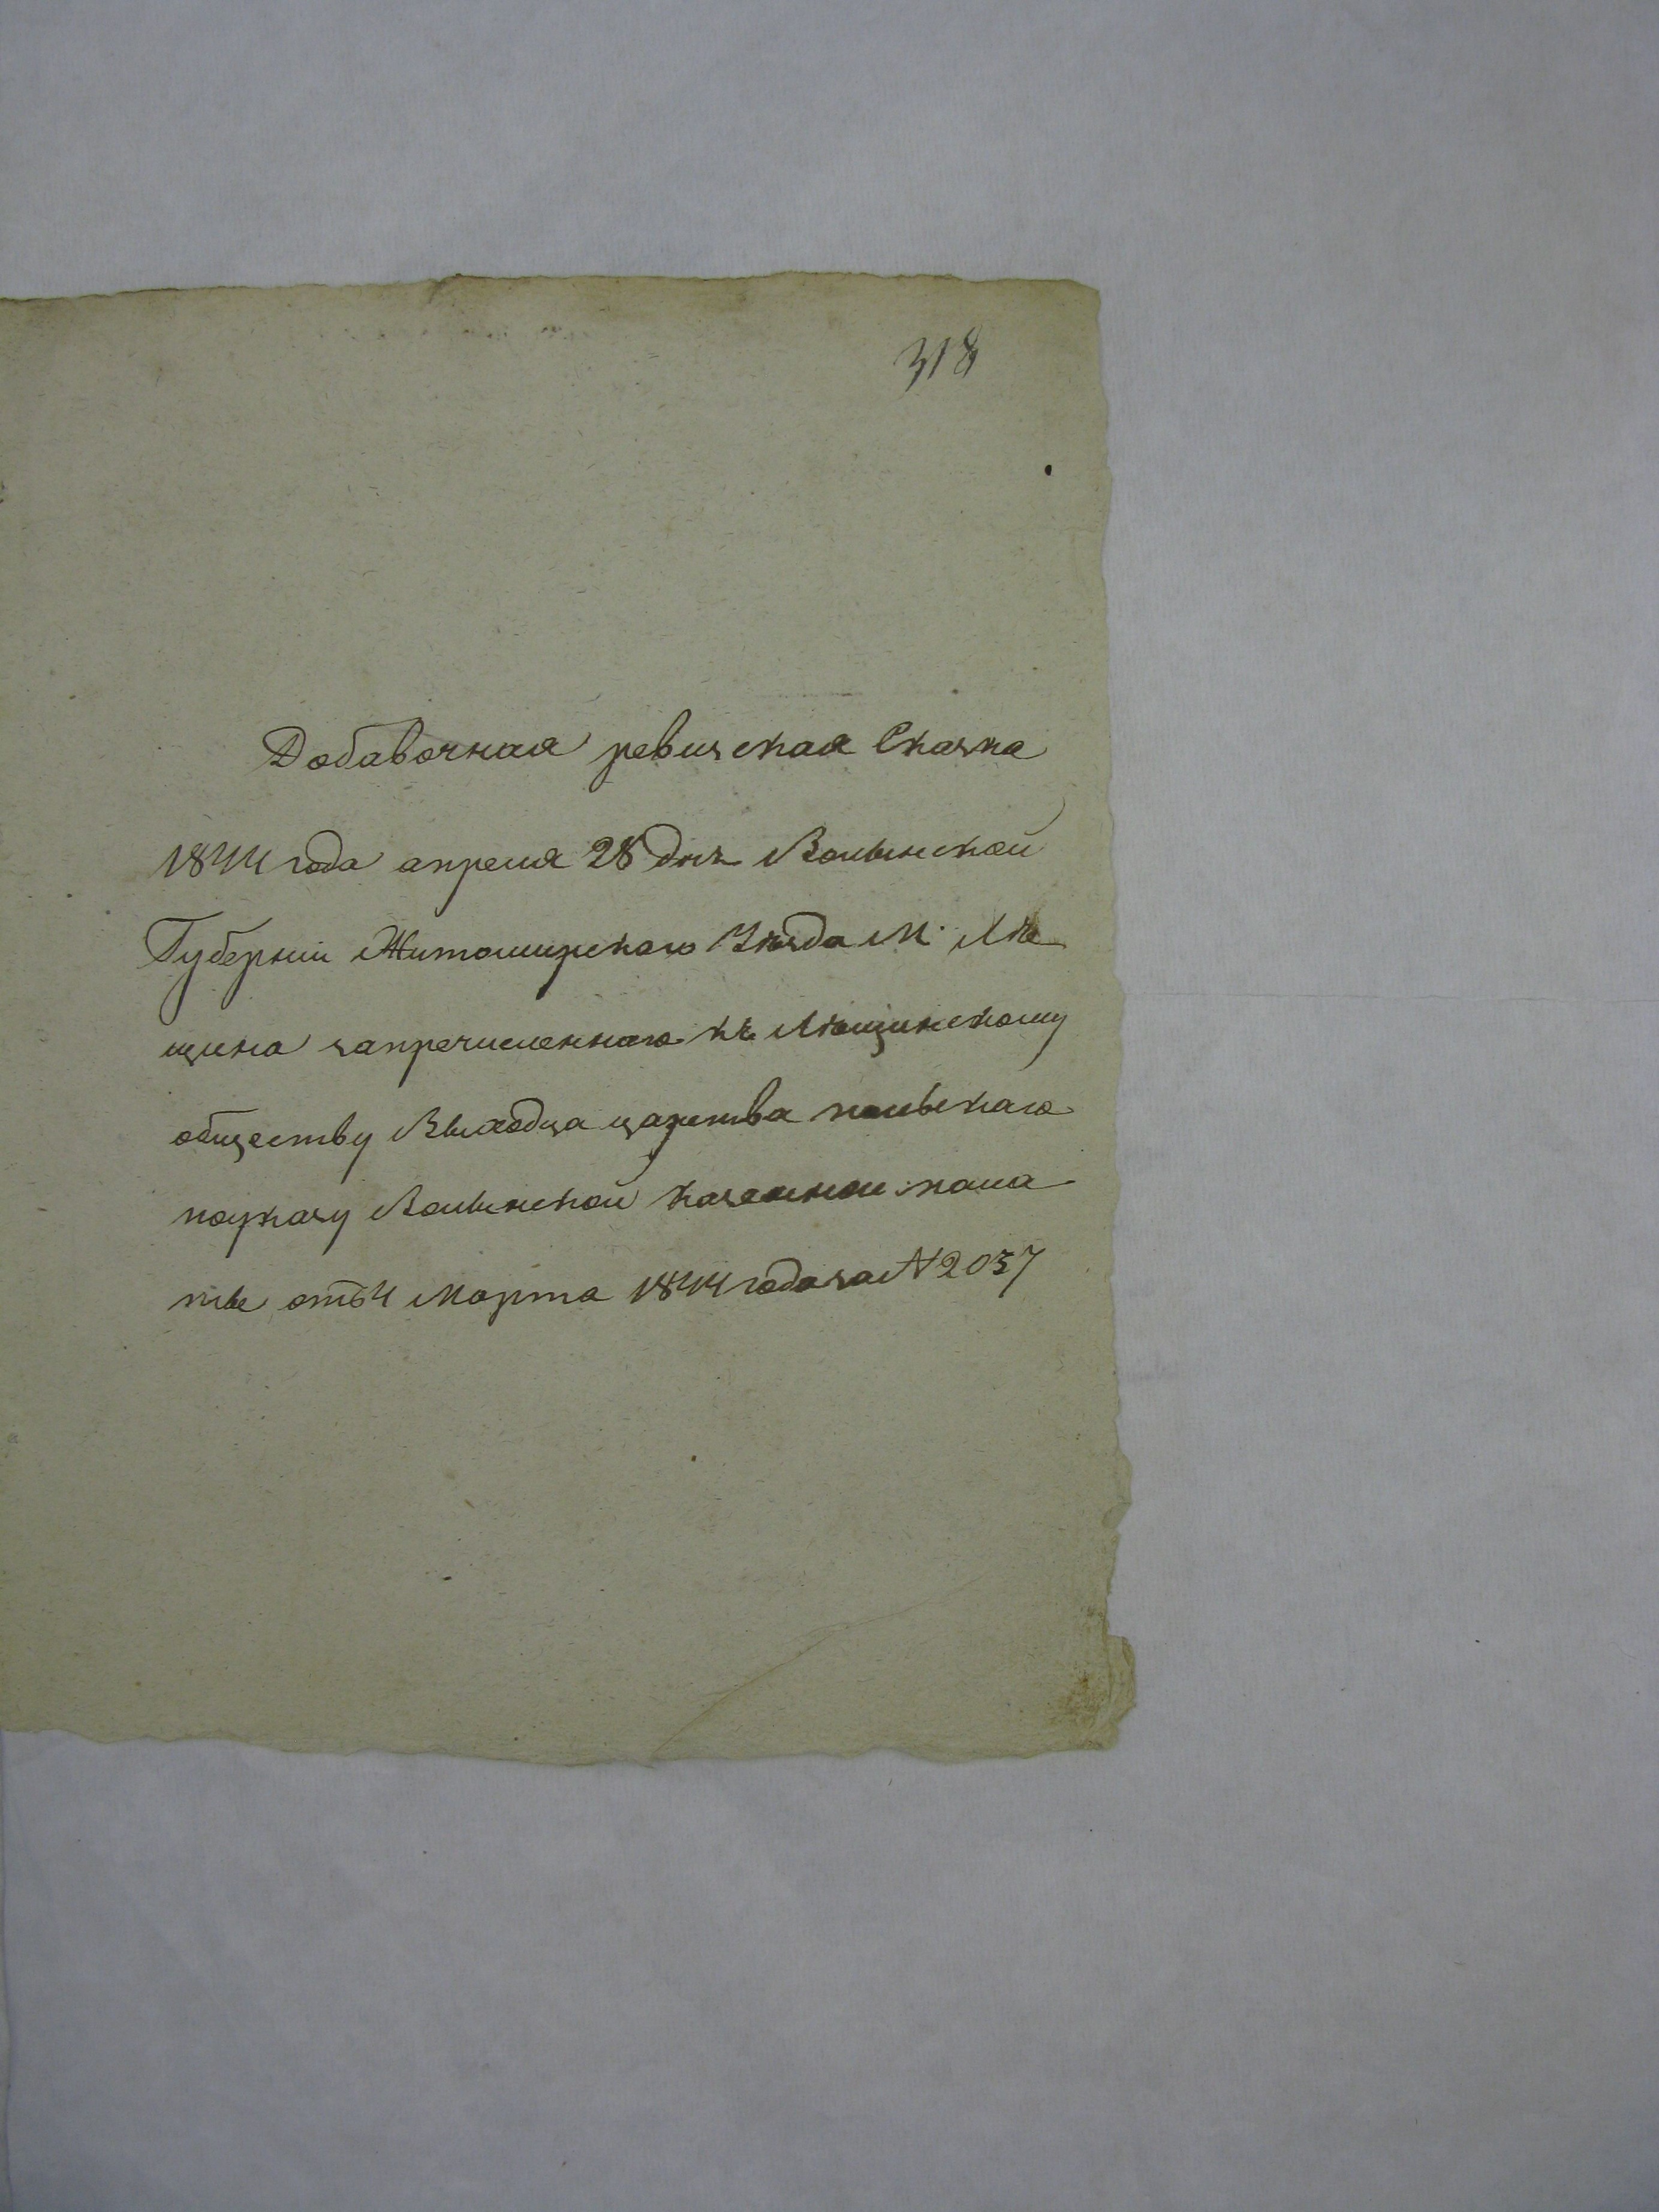 318
Добавочная ревизская Сказка
1844 года апреля 28 днѣ Волынской
Губернии Житомирского Уѣзда М. Лѣ
щина запречисленнаго къ Лѣщинскому
обществу Выходца царства польскаго
поуказу Волынской казенной пала
ты отъ 4 Марта 1844 года за № 2037